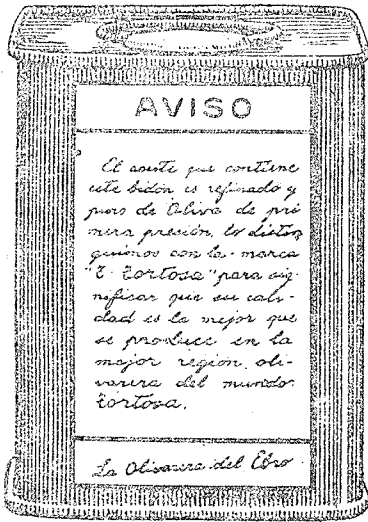 AVISO
El aceite que contiene
este bidón es refinado y
puro de Oliva de pri
mera presión, lo distin
guimos con la marca
"E. Tortosa" para sig-
nificar que su cali-
dad es la mejor que
se produce en la
mejor región oli-
varera del mundo:
Tortosa.
La Olivarera del Ebro